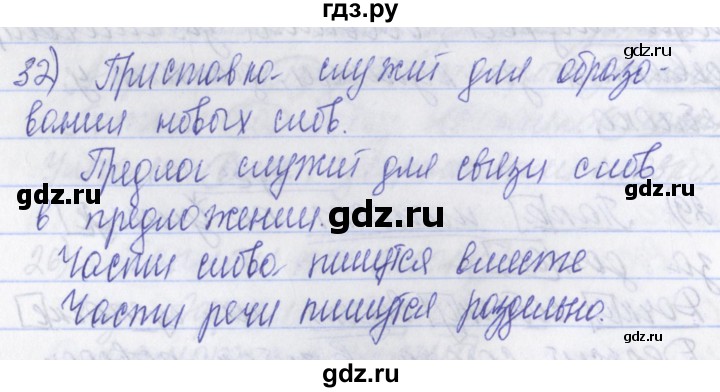 гдз.ру
32) Приставка служит для образо-
вания новых слов.
Предлог служит для связи слов
в предложении.
Части слова пишутся вместе
Части речи пишутся раздельно.
gdz.ru
gdz.ru
gdz.ru
gdz.ru
gdz.ru
gdz.ru
gdz.ru